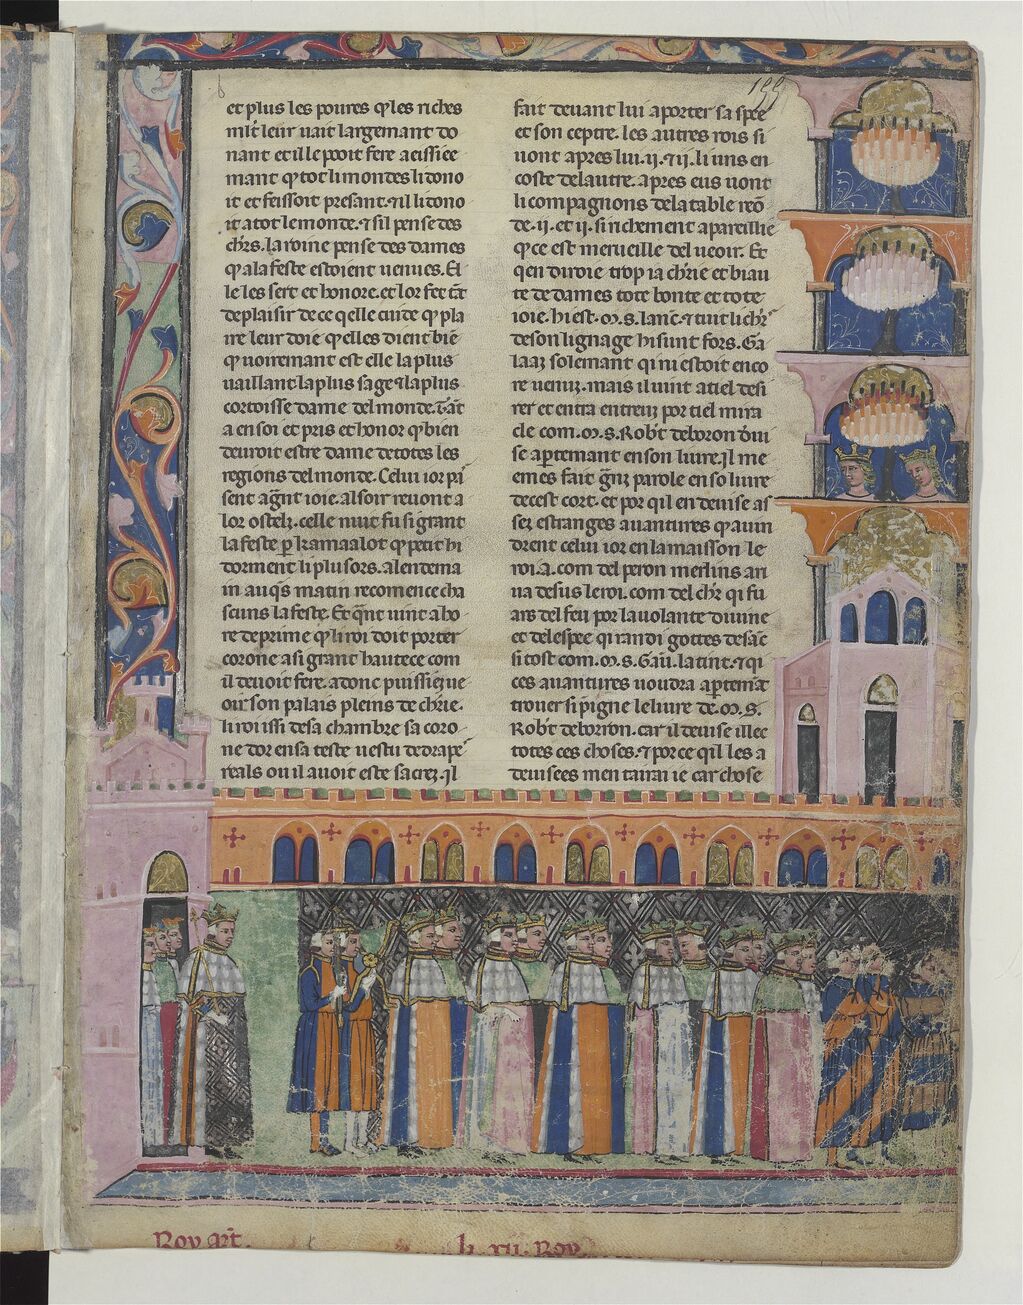 199
et plus les poures q̄ les riches
ml't leur uait largemant do
nant et il le pooit fere aeissi ce
mant q̄ tot li mondes li dono
it et feissoit presant. ⁊ il li dono
it a tot le monde. ⁊ s'il pense des
chr̄s. la roine pense des dames
q̄ a la feste estoient uenues. El
le les sert et honore. et lor fet tāt
de plaisir de ce q̄lle cuide q̄ pla
ire leur doie q̄lles dient biē
q̄ uoiremant est elle la plus
uaillant la plus sage ⁊ la plus
cortoisse dame del monde. ⁊ tāt
a en soi et pris et honor q̄ bien
deuroit estre dame de totes les
regions del monde. Celui ior pi
sent aḡnt ioie. al soir reuont a
lor ostelz. celle nuit fu si grant
la feste p̱ kamaalot q̄ petit hi
dorment li plusors. alendema
in auq̄s matin recomence cha
scuns la feste. Et q̄nt uint a ho
re de prime q̄ li roi doit porter
corone asi grant hautece com
il deuoit fere. adonc puissieçue
oir son palais pleins de ch'rie.
li rois issi de sa chambre sa coro
ne dor en sa teste uestu de drap'
reals ou il auoit este sacrez. il
fait deuant lui aporter sa spee
et son ceptre. les autres rois si
uont apres lui. ij. ⁊ ij. li uns en
coste de lautre. apres eus uont
li compagnons de la table reō
de. ij. et ij. si richement apareillie
q̄ ce est merueille del ueoir. Et
q̄ en diroie trop ia ch'rie et biau
te de dames tote bonte et tote
ioie. hi est. m. s. lanc'. ⁊ tuit li ch'r
de son lignage hi sunt fors. Ga
laaz solemant qi ni estoit enco
re uenuz. mais il uint a tel desi
rer et entra entreuz por tiel mira
cle com. m. s. Rob't de boron diui
se ap̱temant en son liure. il me
emes fait ḡnz parole en so liure
de cest cort. et por qil en deuise as
sez estranges auantures q̄ auin
drent celui ior en la maisson le
roi. a. com del peron merlins ari
ua desus le roi. com del ch'r qi fu
ars del feu por la uolante diuine
et del espee qi randi gottes de sāc
si tost com. m. s. Gau. la tint. ⁊ qi
ces auantures uoudra ap̱temāt
trouer si pigne le liure de. m. s.
Rob't de boron. car il deuise illec
totes ces choses. ⁊ por ce qil les a
deuisees men tairai ie car chose
Roy art.
li xii. Roy